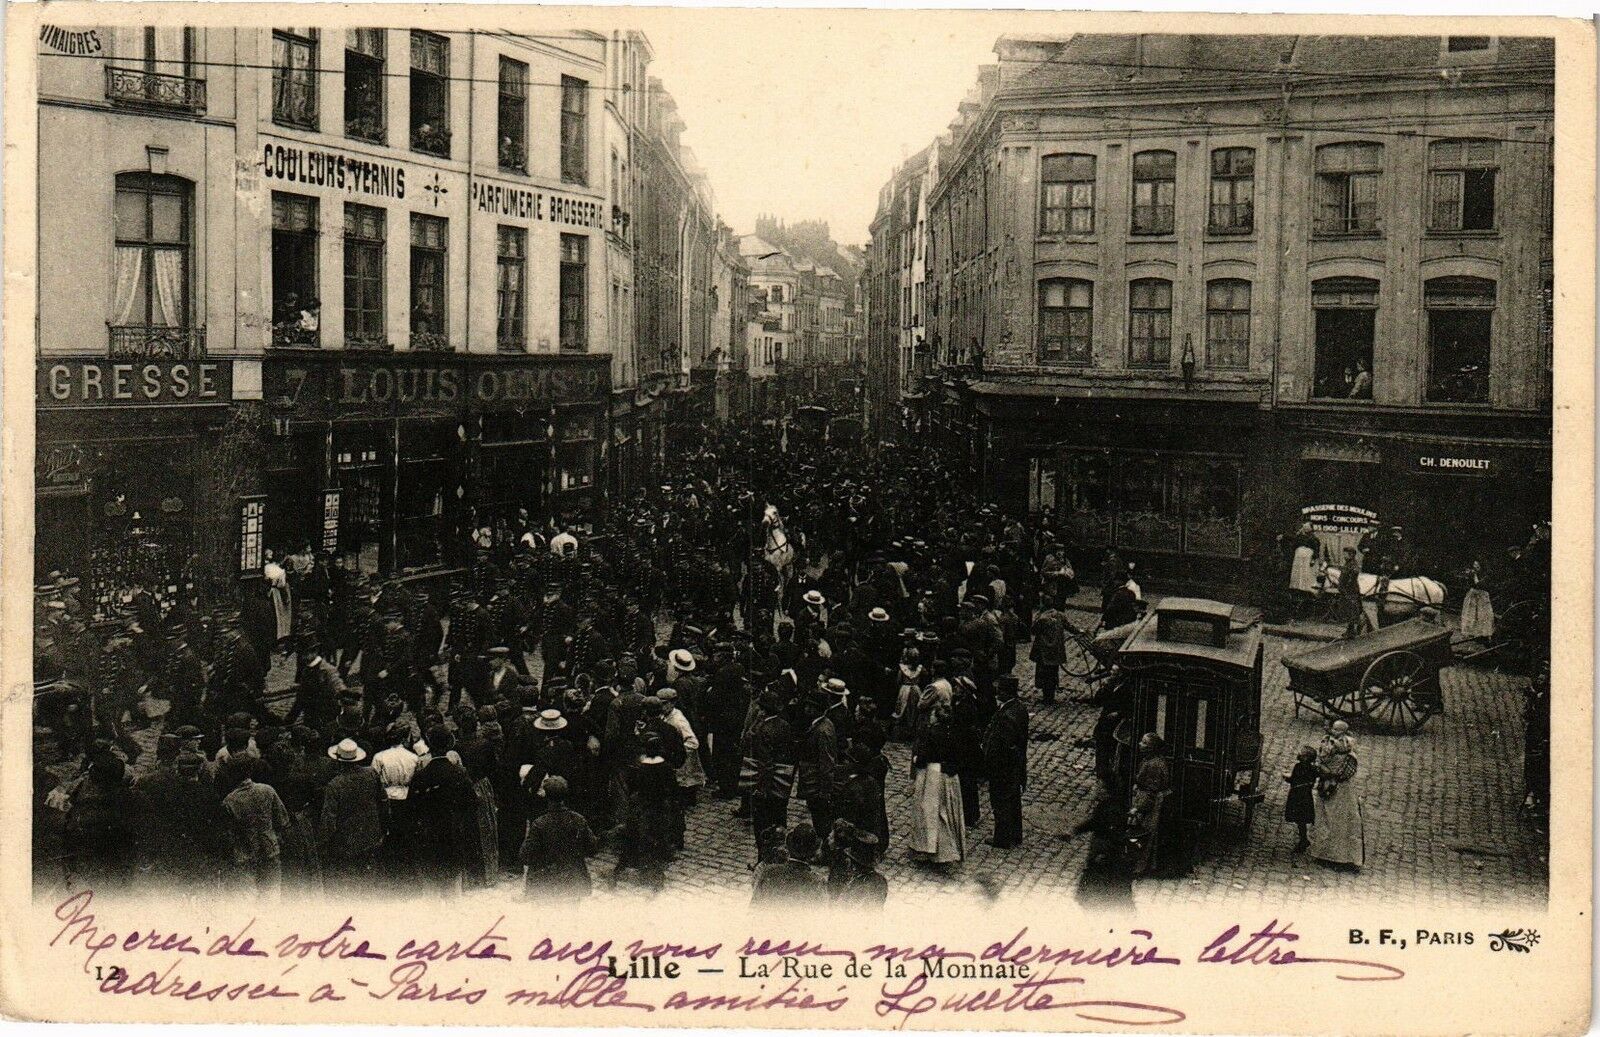 VINAIGRES
COULEURS, VERNIS
PARFUMERIE BROSSERIE
GRESSE
7 LOUIS OLMS 9
CH. DENOULET
BRASSERIE DES MOULINS
HORS CONCOURS
1900 LILLE
B. F., PARIS
Merci de votre carte avez vous reçu ma dernière lettre
12 Lille — La Rue de la Monnaie
adressée à Paris mille amitiés Lucette